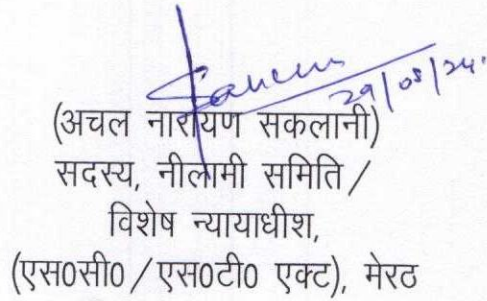 29/05/24
(अचल नारायण सकलानी)
सदस्य, नीलामी समिति /
विशेष न्यायाधीश,
(एस0सी0 / एस0टी0 एक्ट), मेरठ